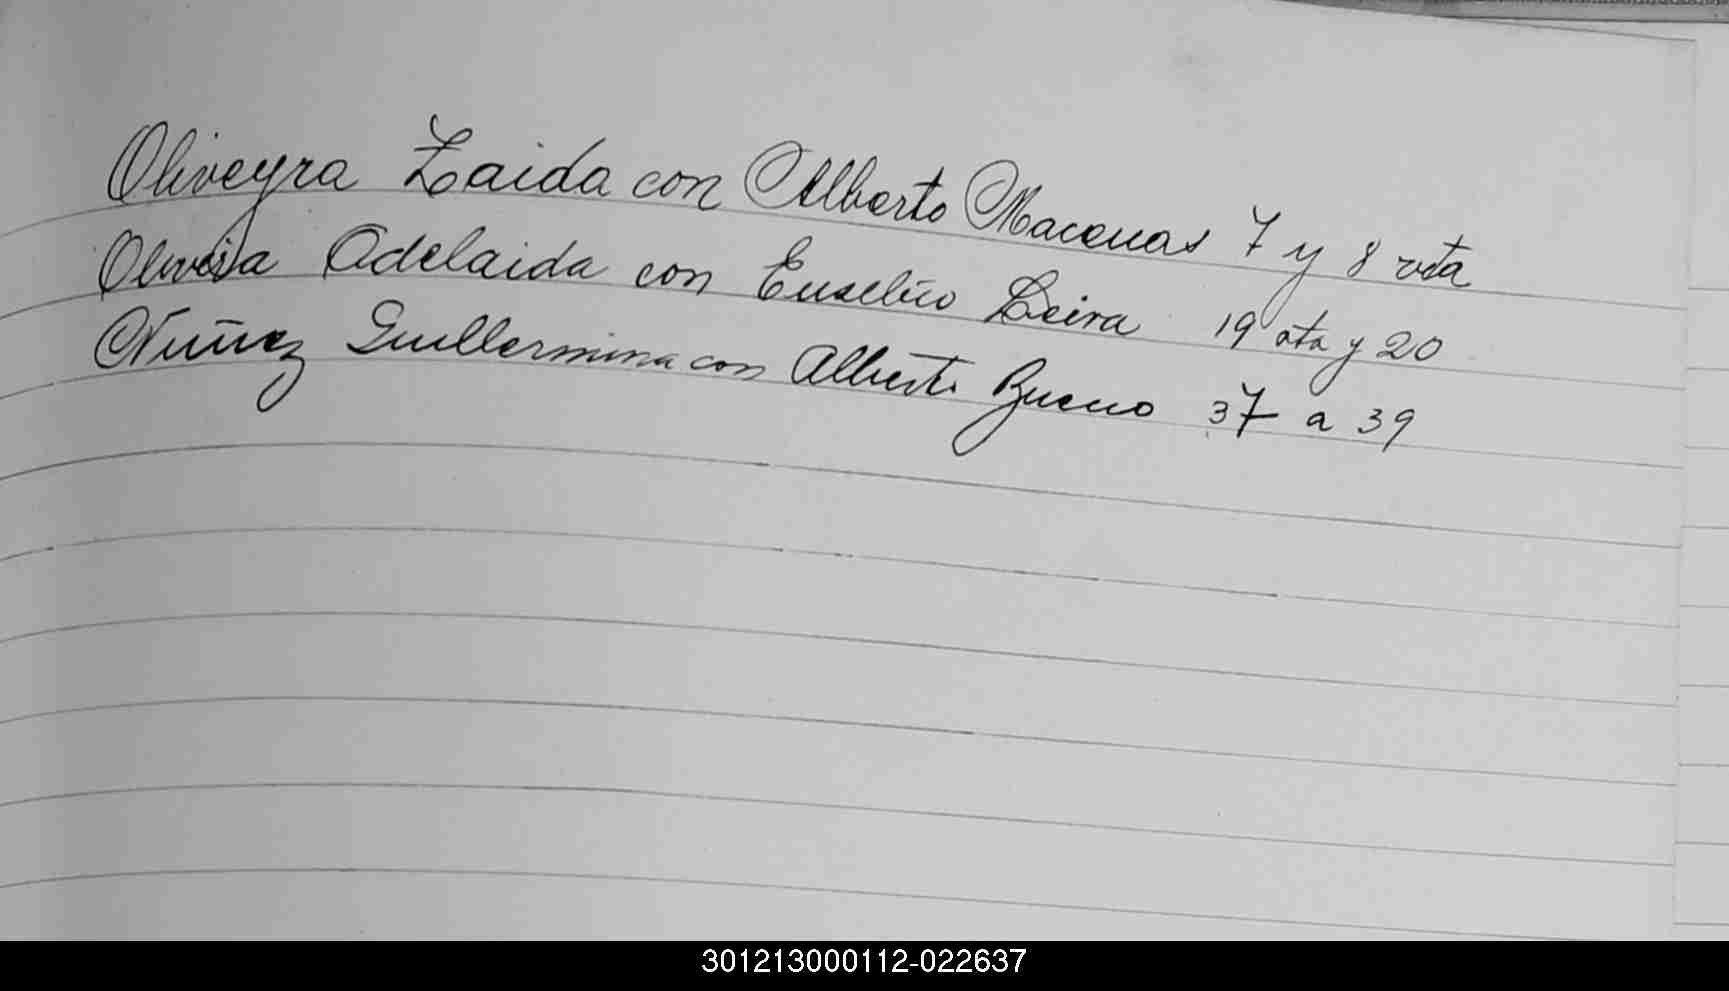 Oliveyra Zaida con Alberto Macenas 7 y 8 vta
Oliveira Adelaida con Eusebio Leira 19 vta y 20
Nuñez Guillermina con Alberto Bueno 37 a 39
301213000112-022637